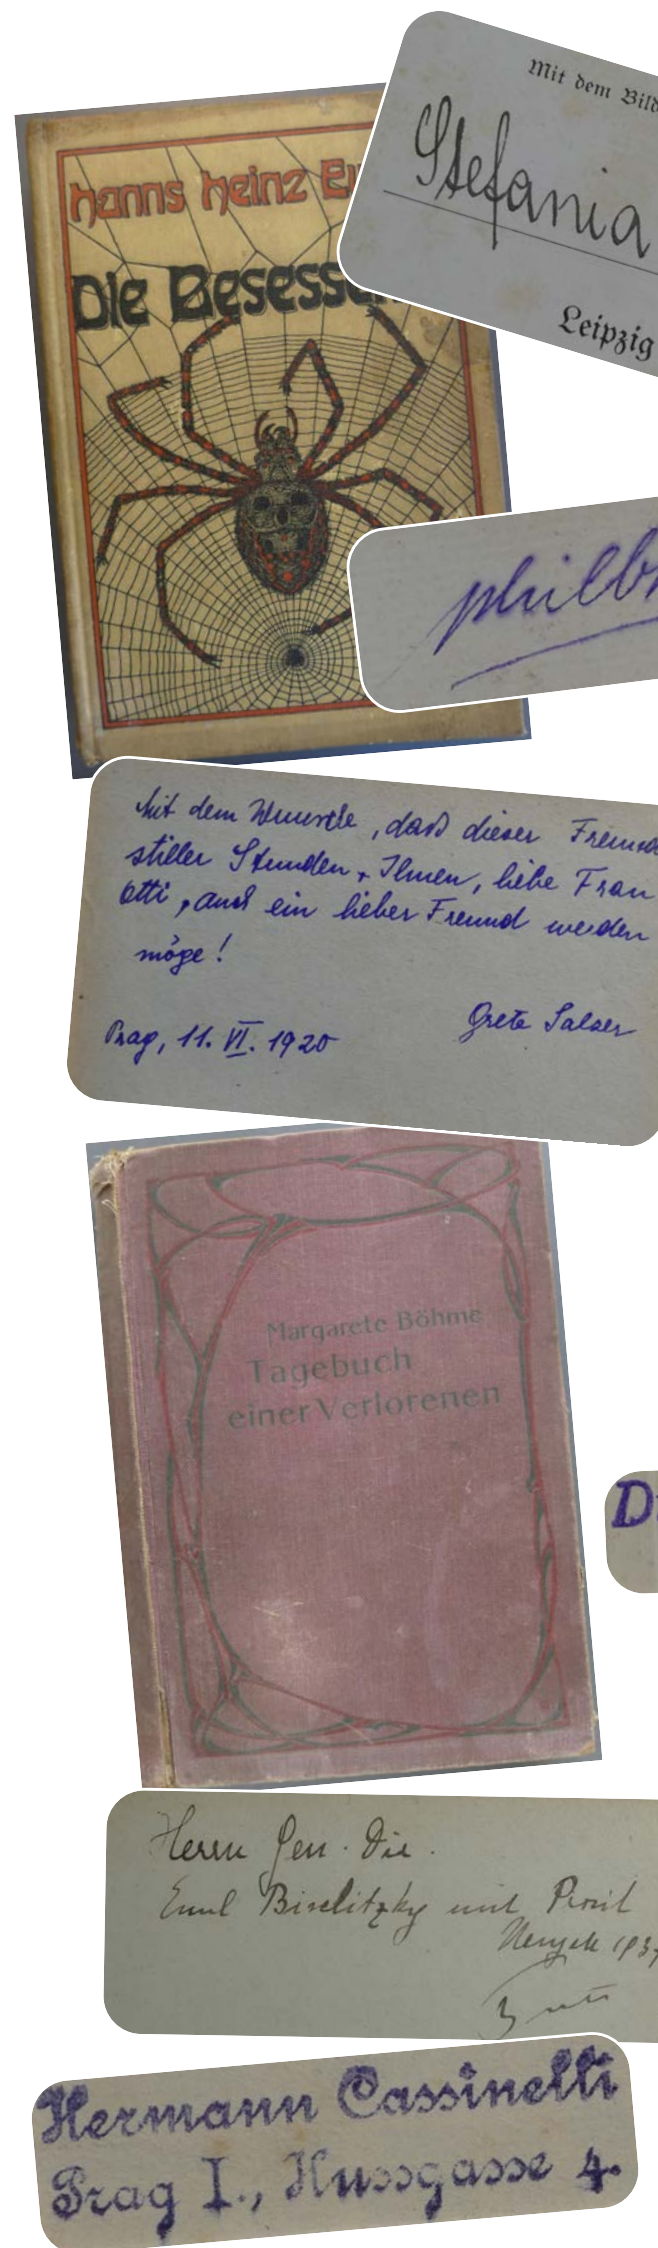 Hanns Heinz
Die
Mit dem
Stefania
Leipzig
Mit dem Wunsche, dass dieser
stiller Stunden, Ihnen, liebe Frau
Otti, auch ein lieber Freund werden
möge!
Prag, 11. VI. 1920
Grete Salzer
Margarete Böhme
Tagebuch
einer Verlorenen
Herrn Gen. Dir.
Emil mit Prosit
Hermann Cassinelli
Prag I., Hussgasse 4.